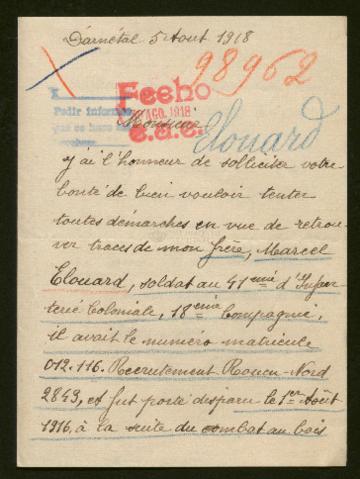 Darnétal 5 Aout 1918
98962
Fecho
AGO. 1918
e.a.c.
Pedir
que se
Monsieur
Elouard
J'ai l'honneur de solliciter votre
bonté de bien vouloir tenter
toutes démarches en vue de retrou-
ver traces de mon frère, Marcel
Elouard, soldat au 41eme d'Infan
terie Coloniale, 18eme Compagnie,
il avait le numéro matricule
012.116. Recrutement Rouen-Nord
2843, et fut porté disparu le 1er Août
1916, à la suite du combat au bois